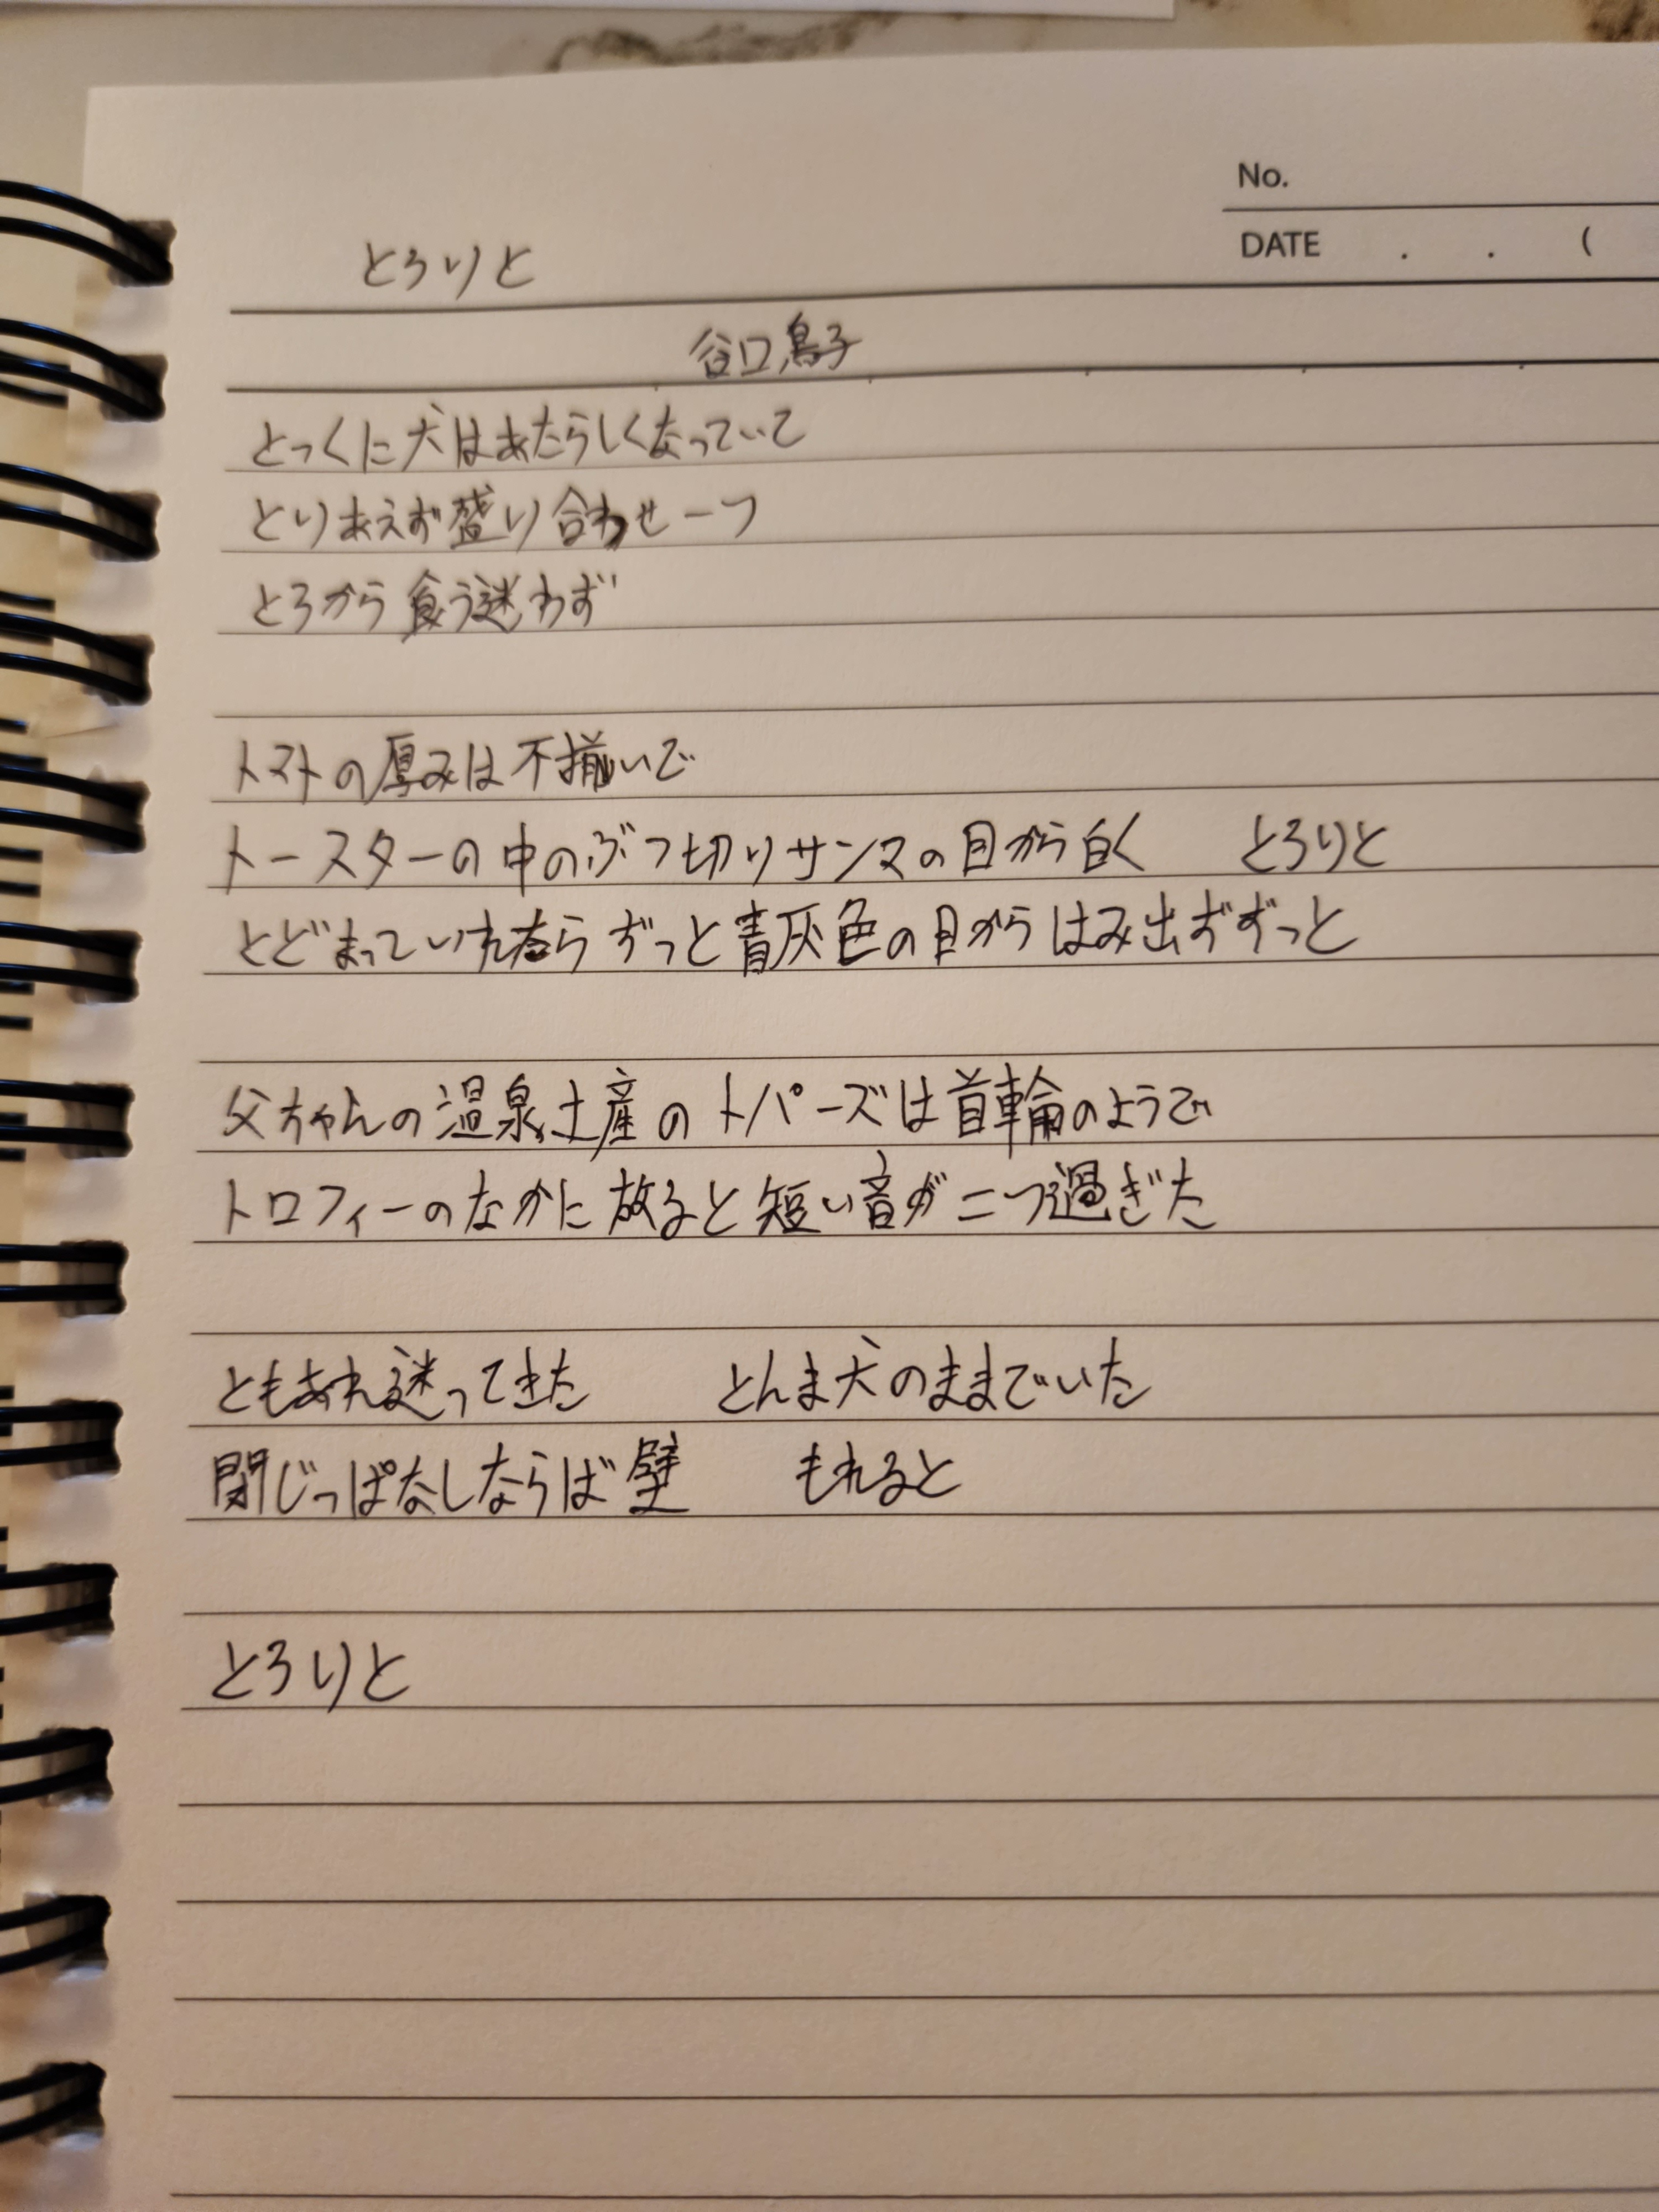 No.
DATE . . (
とろりと
谷口鳥子
とっくに犬はあたらしくなっていて
とりあえず盛り合わせ一つ
とろから食う迷わず
トマトの厚みは不揃いで
トースターの中のぶつ切りサンマの目から白く とろりと
とどまっていれたならずっと青灰色の目からはみ出ずずっと
父ちゃんの温泉土産のトパーズは首輪のようで
トロフィーのなかに放ると短い音が二つ過ぎた
ともあれ迷ってきた とんま犬のままでいた
閉じっぱなしならば壁 もれると
とろりと